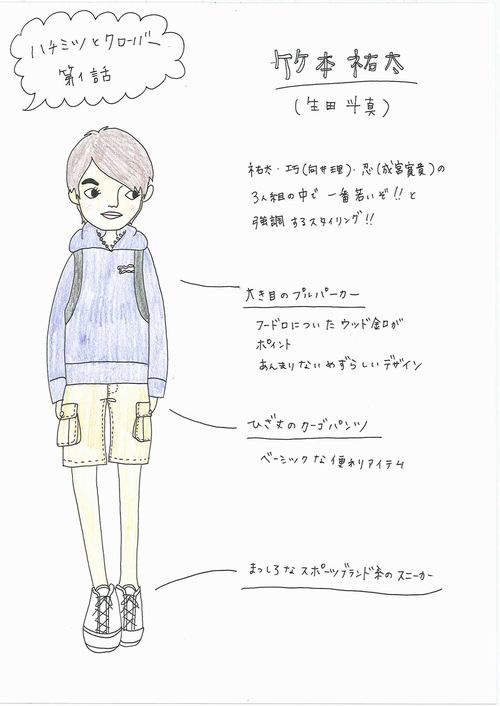 ハチミツとクローバー
第1話
竹本祐太
(生田斗真)
祐太・巧(向井理)・忍(成宮寛貴)の
3人組の中で一番若いぞ!!と
強調するスタイリング!!
大き目のプルパーカー
フード口についたウッド金口が
ポイント
あんまりないめずらしいデザイン
ひざ丈のカーゴパンツ
ベーシックな便利アイテム
まっしろなスポーツブランド系のスニーカー